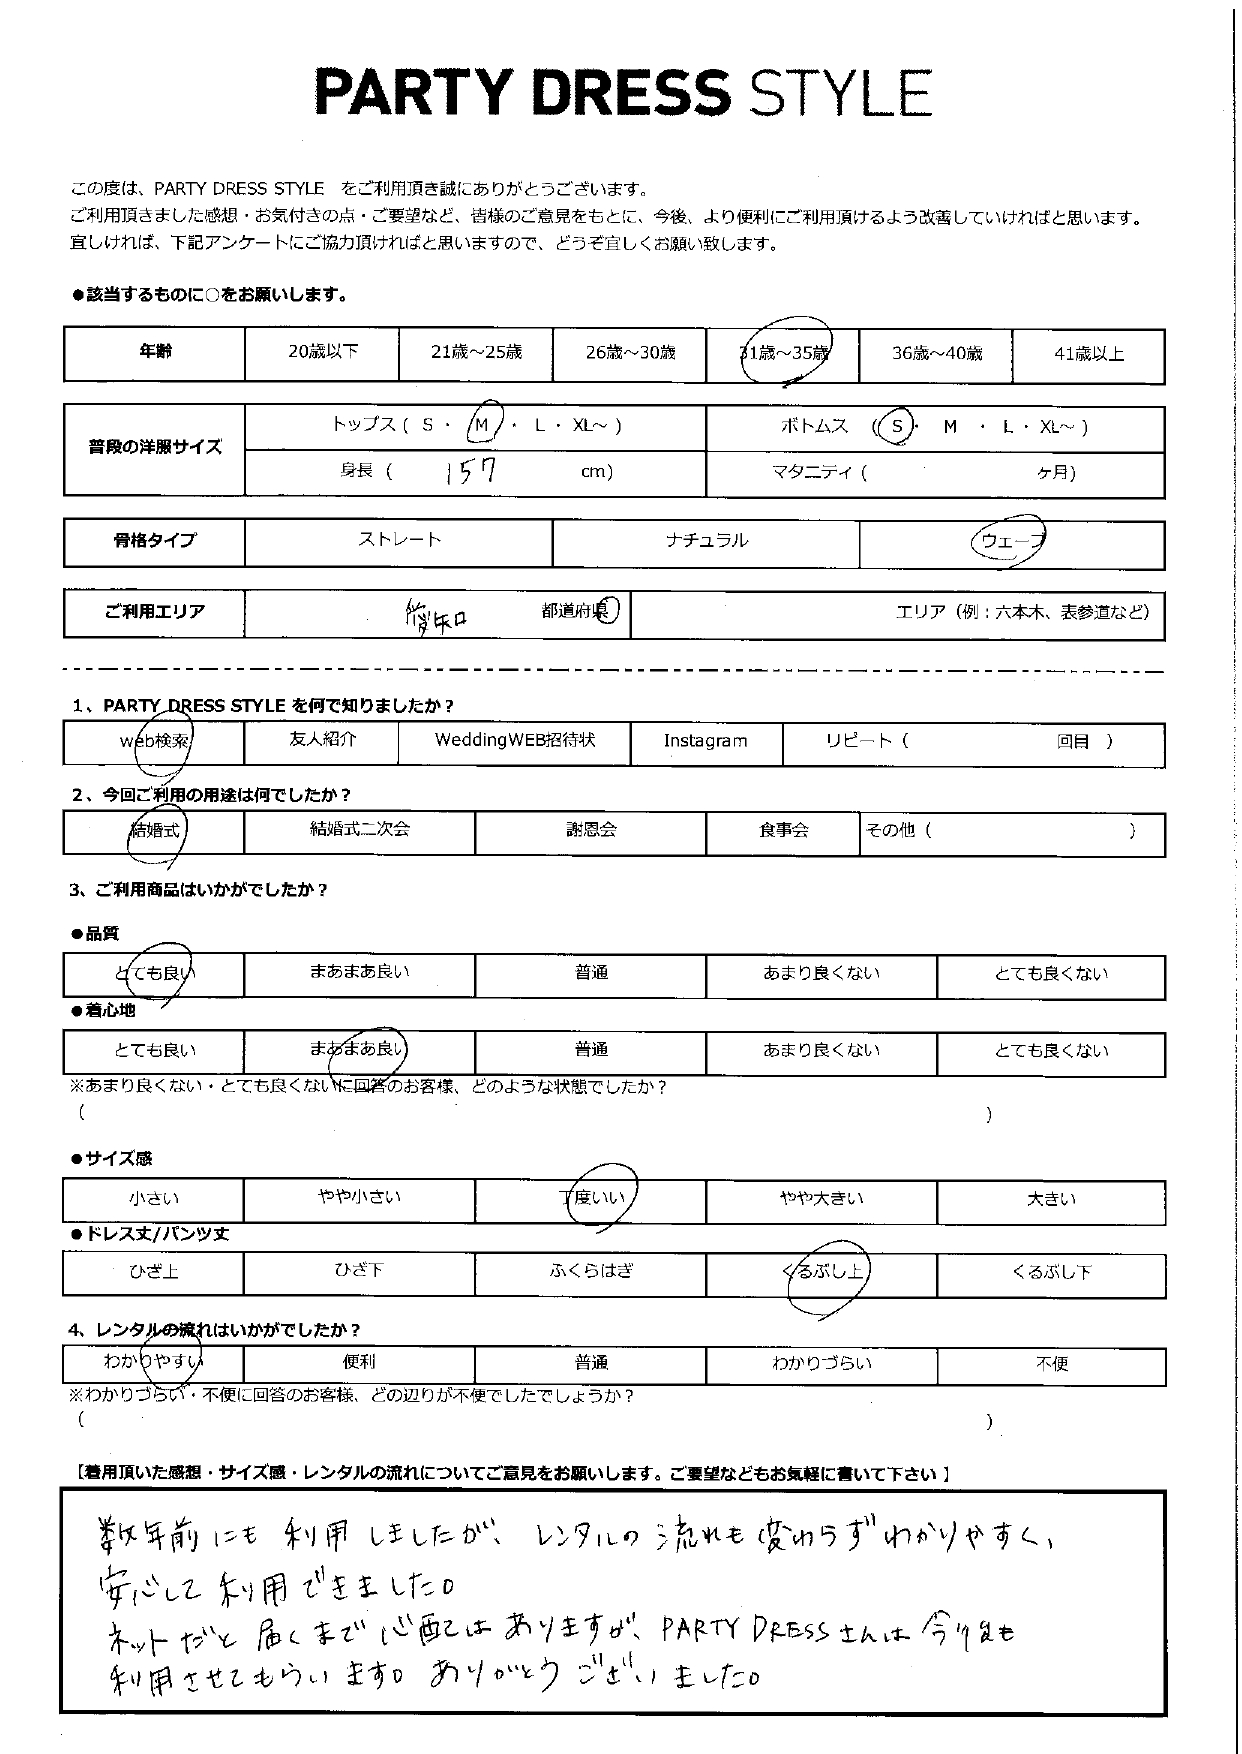 PARTY DRESS STYLE
この度は、PARTY DRESS STYLE をご利用頂き誠にありがとうございます。
ご利用頂きました感想・お気付きの点・ご要望など、皆様のご意見をもとに、今後、より便利にご利用頂けるよう改善していければと思います。
宜しければ、下記アンケートにご協力頂ければと思いますので、どうぞ宜しくお願い致します。
●該当するものに○をお願いします。
年齢 20歳以下 21歳～25歳 26歳～30歳 31歳～35歳 36歳～40歳 41歳以上
普段の洋服サイズ
トップス ( S ・ M ・ L ・ XL～ ) ボトムス ( S ・ M ・ L ・ XL～ )
身長 ( 157 cm) マタニティ ( ヶ月)
骨格タイプ ストレート ナチュラル ウェーブ
ご利用エリア 愛知 都道府県 エリア（例：六本木、表参道など）
1、PARTY DRESS STYLE を何で知りましたか？
web検索 友人紹介 WeddingWEB招待状 Instagram リピート ( 回目 )
2、今回ご利用の用途は何でしたか？
結婚式 結婚式二次会 謝恩会 食事会 その他 ( )
3、ご利用商品はいかがでしたか？
●品質
とても良い まあまあ良い 普通 あまり良くない とても良くない
●着心地
とても良い まあまあ良い 普通 あまり良くない とても良くない
※あまり良くない・とても良くないに回答のお客様、どのような状態でしたか？
( )
●サイズ感
小さい やや小さい 丁度いい やや大きい 大きい
●ドレス丈/パンツ丈
ひざ上 ひざ下 ふくらはぎ くるぶし上 くるぶし下
4、レンタルの流れはいかがでしたか？
わかりやすい 便利 普通 わかりづらい 不便
※わかりづらい・不便に回答のお客様、どの辺りが不便でしたでしょうか？
( )
【着用頂いた感想・サイズ感・レンタルの流れについてご意見をお願いします。ご要望などもお気軽に書いて下さい】
数年前にも利用しましたが、レンタルの流れも変わらずわかりやすく、
安心して利用できました。
ネットだと届くまで心配はありますが、PARTY DRESSさんは今後も
利用させてもらいます。ありがとうございました。